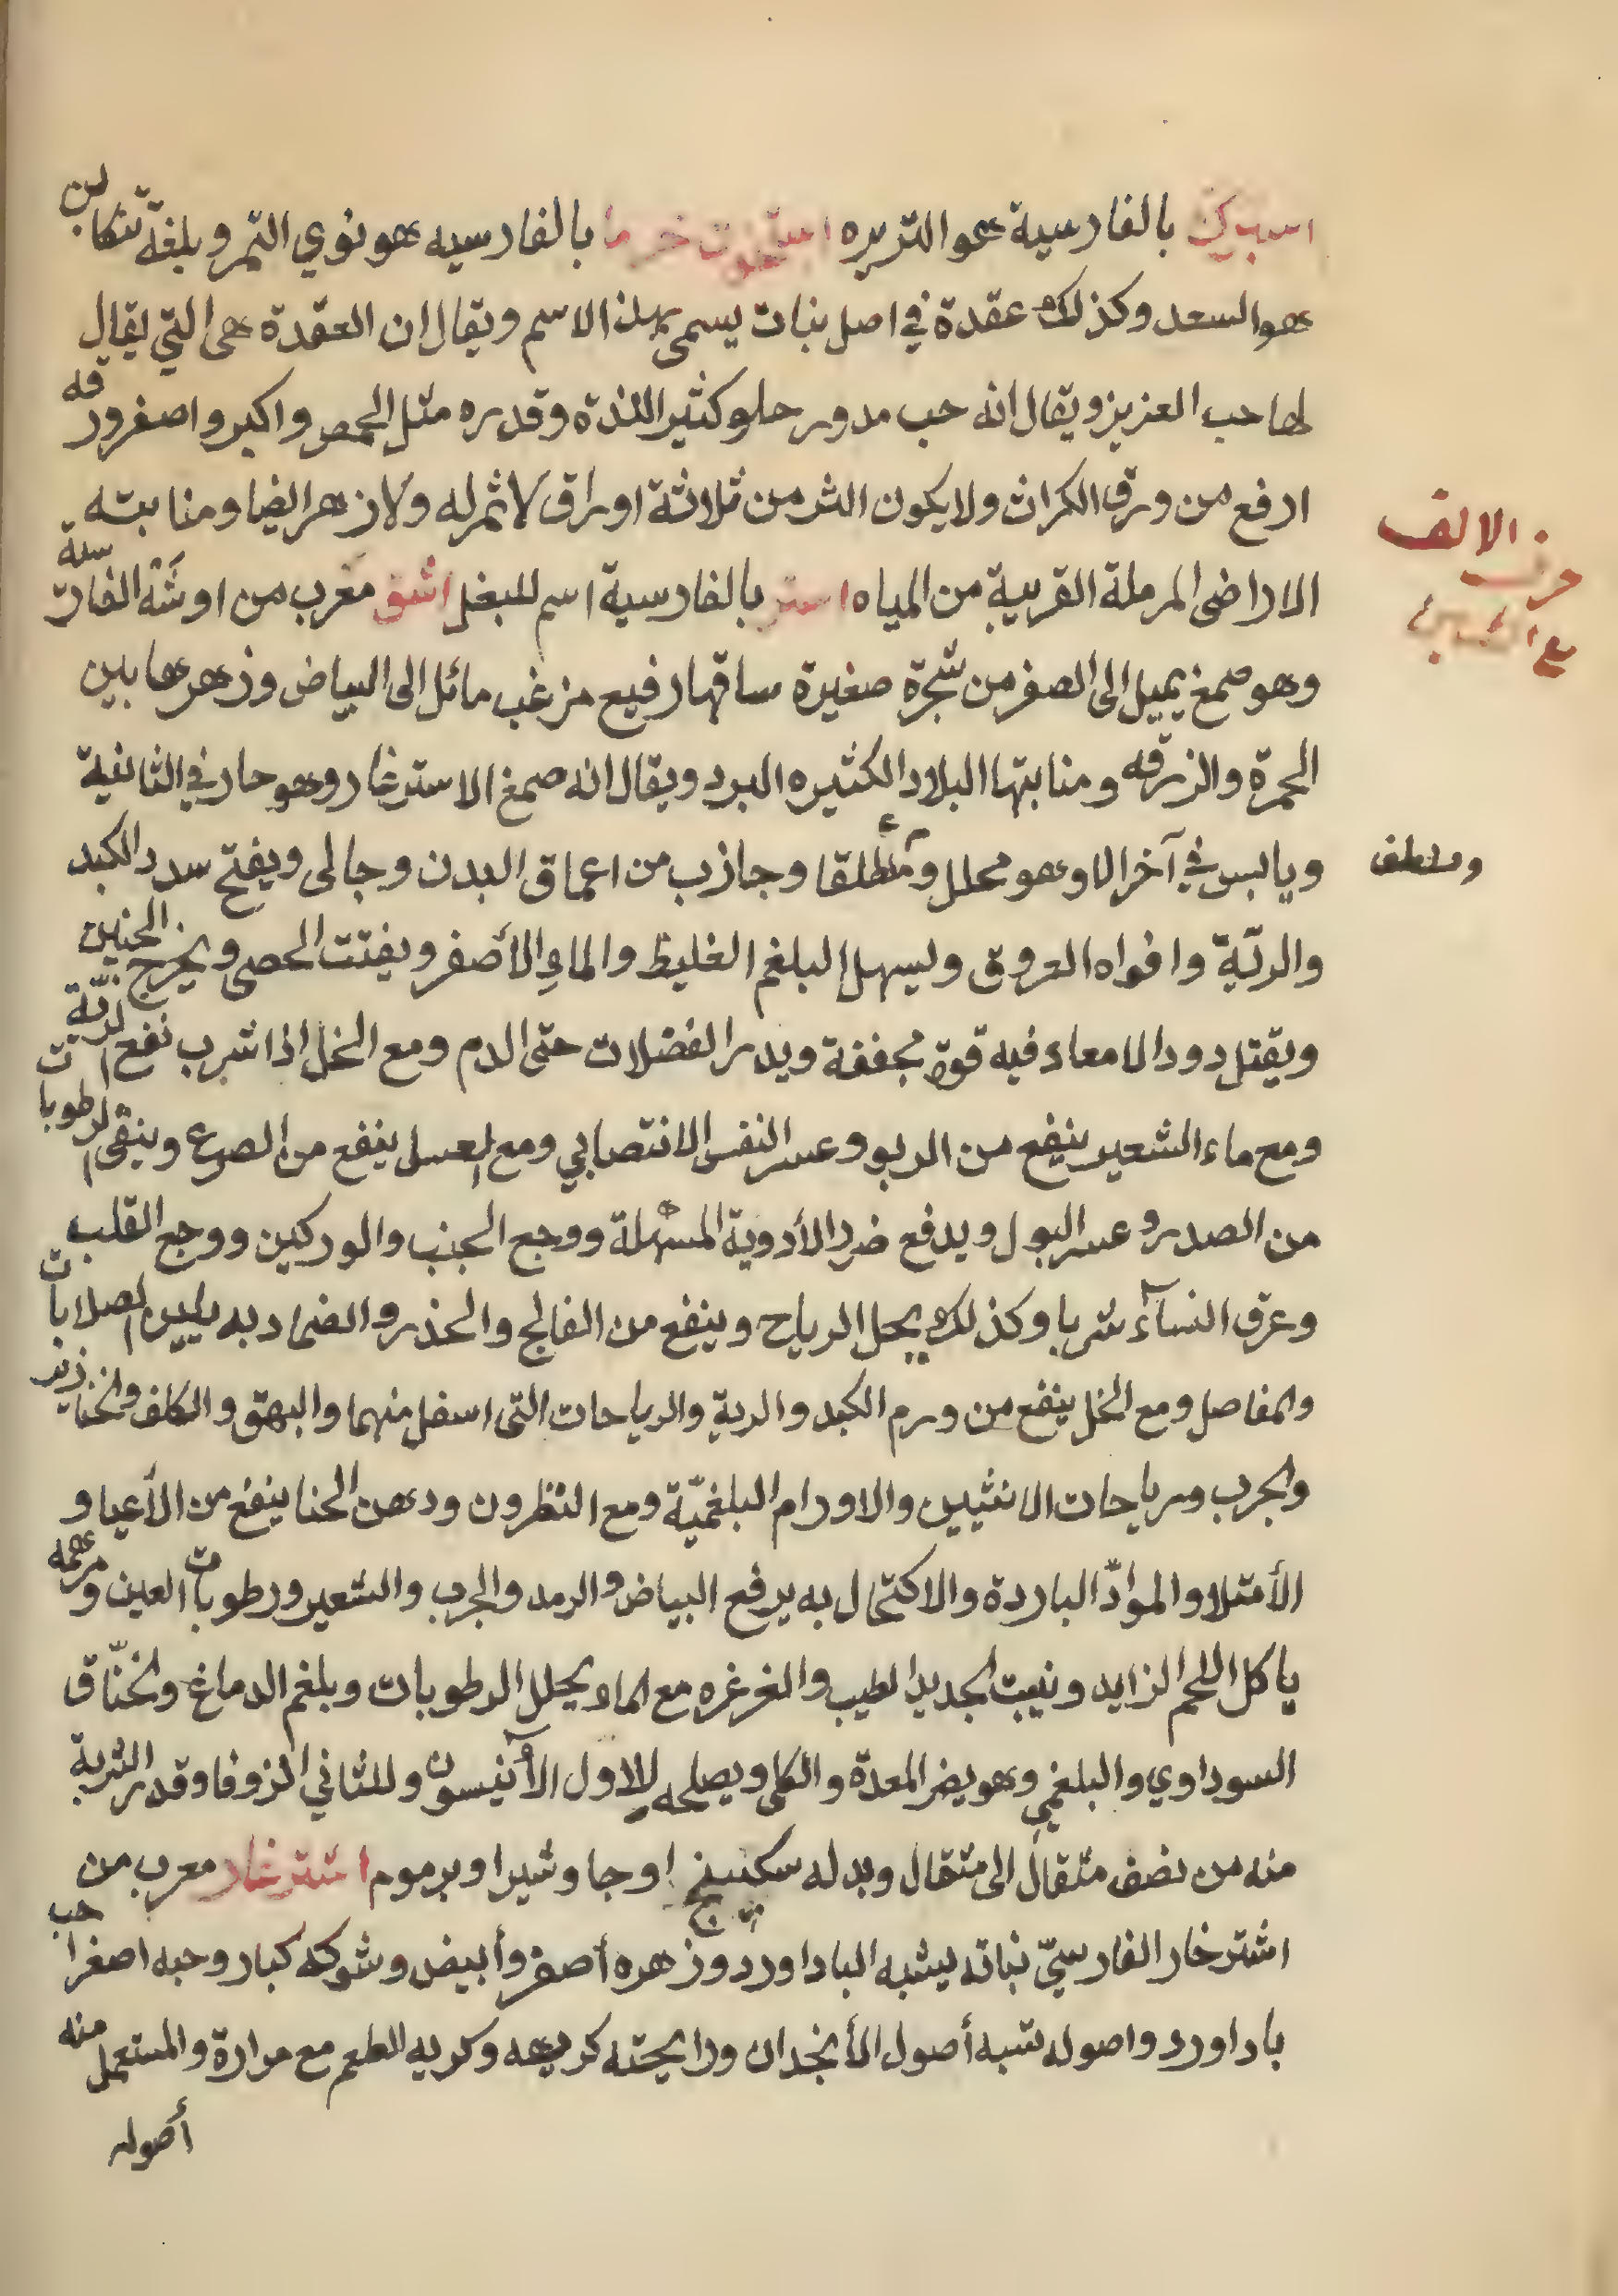 اسپرك بالفارسية هو التريره استخوت خرما بالفارسيه هو نوي التمر وبلغة تنكابن
هو السعد وكذلك عقدة في اصل نبات يسمى بهذا الاسم ويقال ان العقدة هى التي يقال
لها حب العزيز ويقال انه حب مدور حلو كثير اللذة وقدره مثل الحمص واكبر واصفر ورقه
ارفع من ورق الكراث ولا يكون اكثر من ثلاثة اوراق لا ثمر له ولا زهر ايضا ومنابته
الاراضى المرملة القريبة من المياه استر بالفارسية اسم للبغل اشق معرب من اوشَه الفارسية
وهو صمغ يميل الى الصفر من شجرة صغيرة ساقها رفيع مزغب مائل الى البياض وزهرها بين
الحمرة والزرقه ومنابتها البلاد الكثيره البرد ويقال انه صمغ الاسترغار وهو حار في الثانية
ويابس في آخر الاو وهو محلل ومطلقا وجاذب من اعماق البدن وجالى ويفتح سدد الكبد
والريّة وافواه العروق ويسهل البلغم الغليظ والماءِ الأصفر ويفتت الحصى ويخرج الجنين
ويقتل دود الامعاء وفيه قوة مجففة ويدر الفضلات حتى الدم ومع الخل اذا شرب نفع الريّة
ومع ماء الشعير ينفع من الربو وعسر النفس الانتصابي ومع العسل ينفع من الصرع وينقى الرطوبات
من الصدر وعسر البول ويدفع ضرر الأدوية المسهلة ووجع الجنب والوركين ووجع القلب
وعرق النسآء شربا وكذلك يحل الرياح وينفع من الفالج والخذر والضماد به يلين الصلابات
والمفاصل ومع الخل ينفع من ورم الكبد والرية والرياحات التى اسفل منهما والبهق والكلف والخنازير
والجرب ورياحات الانثيين والاورام البلغميّة ومع النظرون ودهن الحنا ينفع من الأعيا و
الأمتلا والموادّ الباردة والاكتحال به يرفع البياض والرمد والجرب والشعير ورطوبات العين ومرهمه
ياكل اللحم الزايد وينبت الجديد الطيب والغرغره مع الماء يحلل الرطوبات وبلغم الدماغ والخنّاق
السوداوي والبلغمي وهو يضر المعدة والكلى ويصلحه للاول الأنيسون وللثاني الزوفا وقدر الشربة
منه من نصف مثقال الى مثقال وبدله سكبينج او جاوشير او برموم اشترغار معرب من
اشترخار الفارسيّ نباته يشبه الباداورد وزهره أصفر وأبيض وشوكه كبار وحبه اصغر احب
باداورد واصوله تشبه أصول الأنجدان ورايحته كريهه وكريه الطعم مع مرارة والمستعمل منه
أصوله
حرف الالف
مع الشين
وملطف